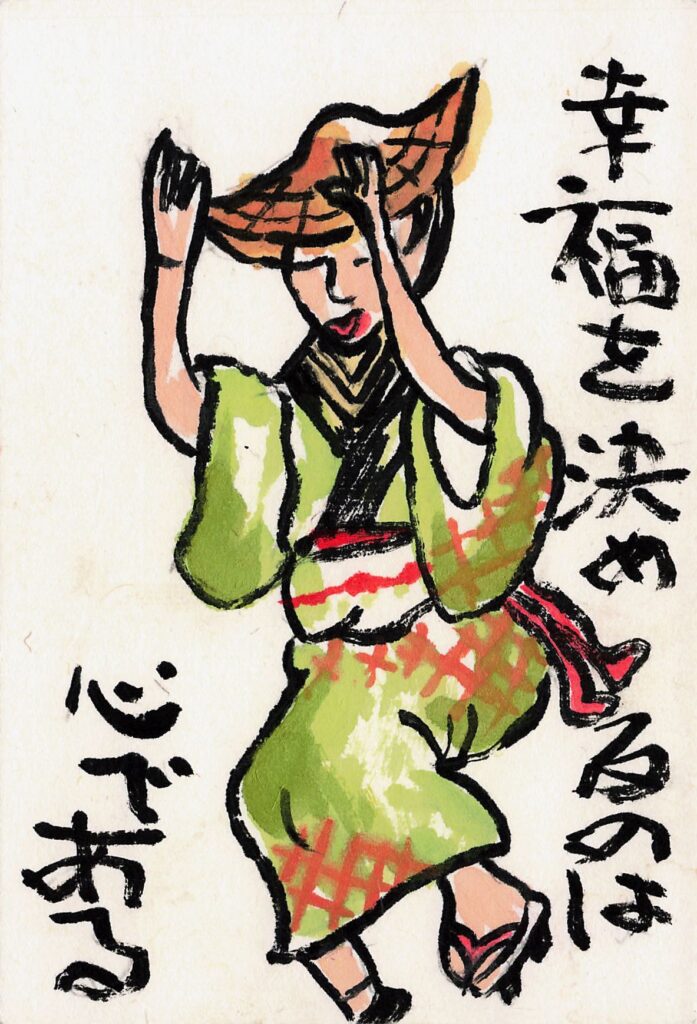 幸福を決めるのは
心である